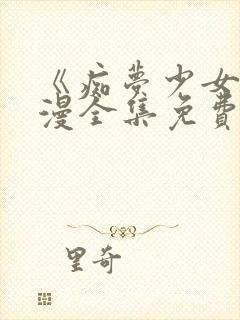 《痴梦少女
漫全集免費
里奇